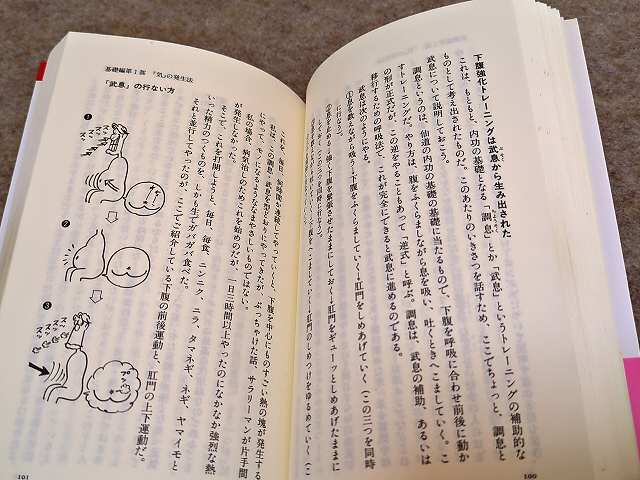 下腹強化トレーニングは武息から生み出された
これは、もともと、内功の基礎となる「調息」とか「武息」というトレーニングの補助的な
ものとして考え出されたものだ。このあたりのいきさつを話すため、ここでちょっと、調息と
武息について説明しておこう。
調息というのは、仙道の内功の基礎に当たるもので、下腹を呼吸に合わせ前後に動か
すトレーニングだ。やり方は、腹をふくらましながら息を吸い、吐くときへこましていく。こ
の形が正式だが、この逆をやることもあって「逆式」と呼ぶ。調息は、武息の補助、あるいは
移行するための呼吸法で、これが完全にできると武息に進めるのである。
武息は次のようにやる。
①息を数えながら吸う→下腹をふくらましていく→肛門をしめあげていく（この三つを同時
に行なう）。
②息を止める→強く下腹を緊張させたままにしておく→肛門をギューッとしめあげたままに
100
基礎編第1部 「気」の発生法
「武息」の行ない方
①
②
③
これを、毎日、30時間か連続してやっていくと、下腹を中心にものすごい熱の塊が発生する
私は、この調息・武息を間をおかずにやってきたが、ぶっちゃけた話、サラリーマンが片手間
にやって、モノになるようななまやさしいものではない。
私の場合、病気治しのためこれを始めたのだが、一日三時間以上やったのになかなか強烈な熱
が発生しなかった。
そこで、これを打開しようと、毎日、毎食、ニンニク、ニラ、タマネギ、ネギ、ヤマイモと
いった精力のつくものを、しかも生でガバガバ食べた。
それと並行してやったのが、ここでご紹介している下腹の前後運動と、肛門の上下運動だ。
101